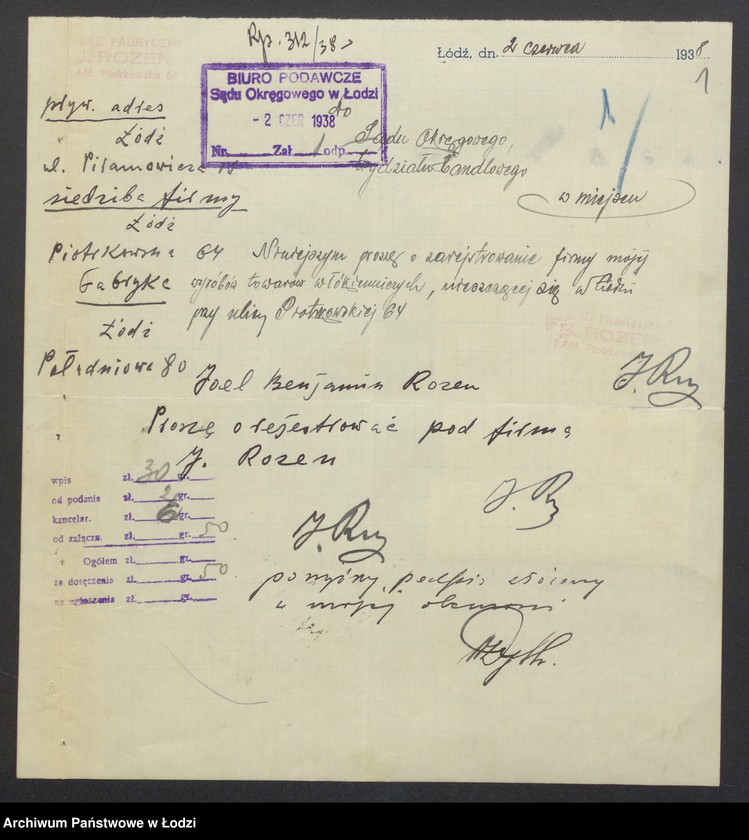 Rp. 312/38
Łódź, dn. 2 czerwca 1938
1
J. ROZEN
BIURO PODAWCZE
Sądu Okręgowego w Łodzi
- 2 CZER 1938
Nr. Zał 1 odp.
do
Sądu Okręgowego,
Wydziału Handlowego
w miejscu
pryw. adres
Łódź
siedziba firmy
Łódź
Piotrkowska 64
Fabryka
Łódź
Południowa 80
Niniejszym proszę o zarejstrowanie firmy mojej
wyrobów towarów włókienniczych, mieszczącej się w Łodzi
przy ulicy Piotrkowskiej 64
J. ROZEN
Joel Benjamin Rozen
Proszę o rejestrować pod firmą
J. Rozen
wpis zł. 30 gr.
od podania zł. 2 gr.
kancelar. zł. 6 gr.
od załącz. zł. gr. 50
Ogółem zł. gr.
za doręczenia zł. gr. 50
na ogłoszenia zł. gr.
powyższy podpis złożony
w mojej obecności
Archiwum Państwowe w Łodzi